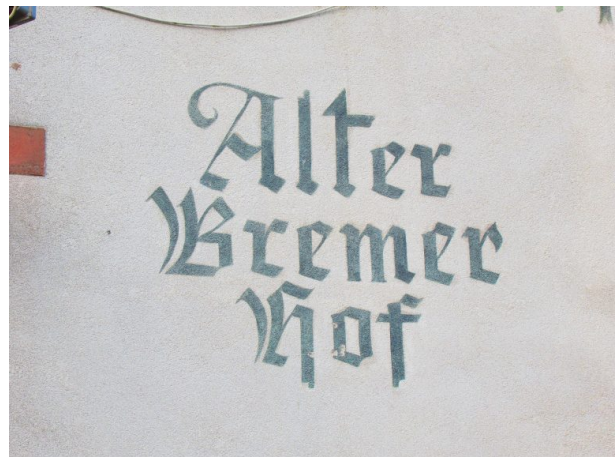 Alter
Bremer
Hof